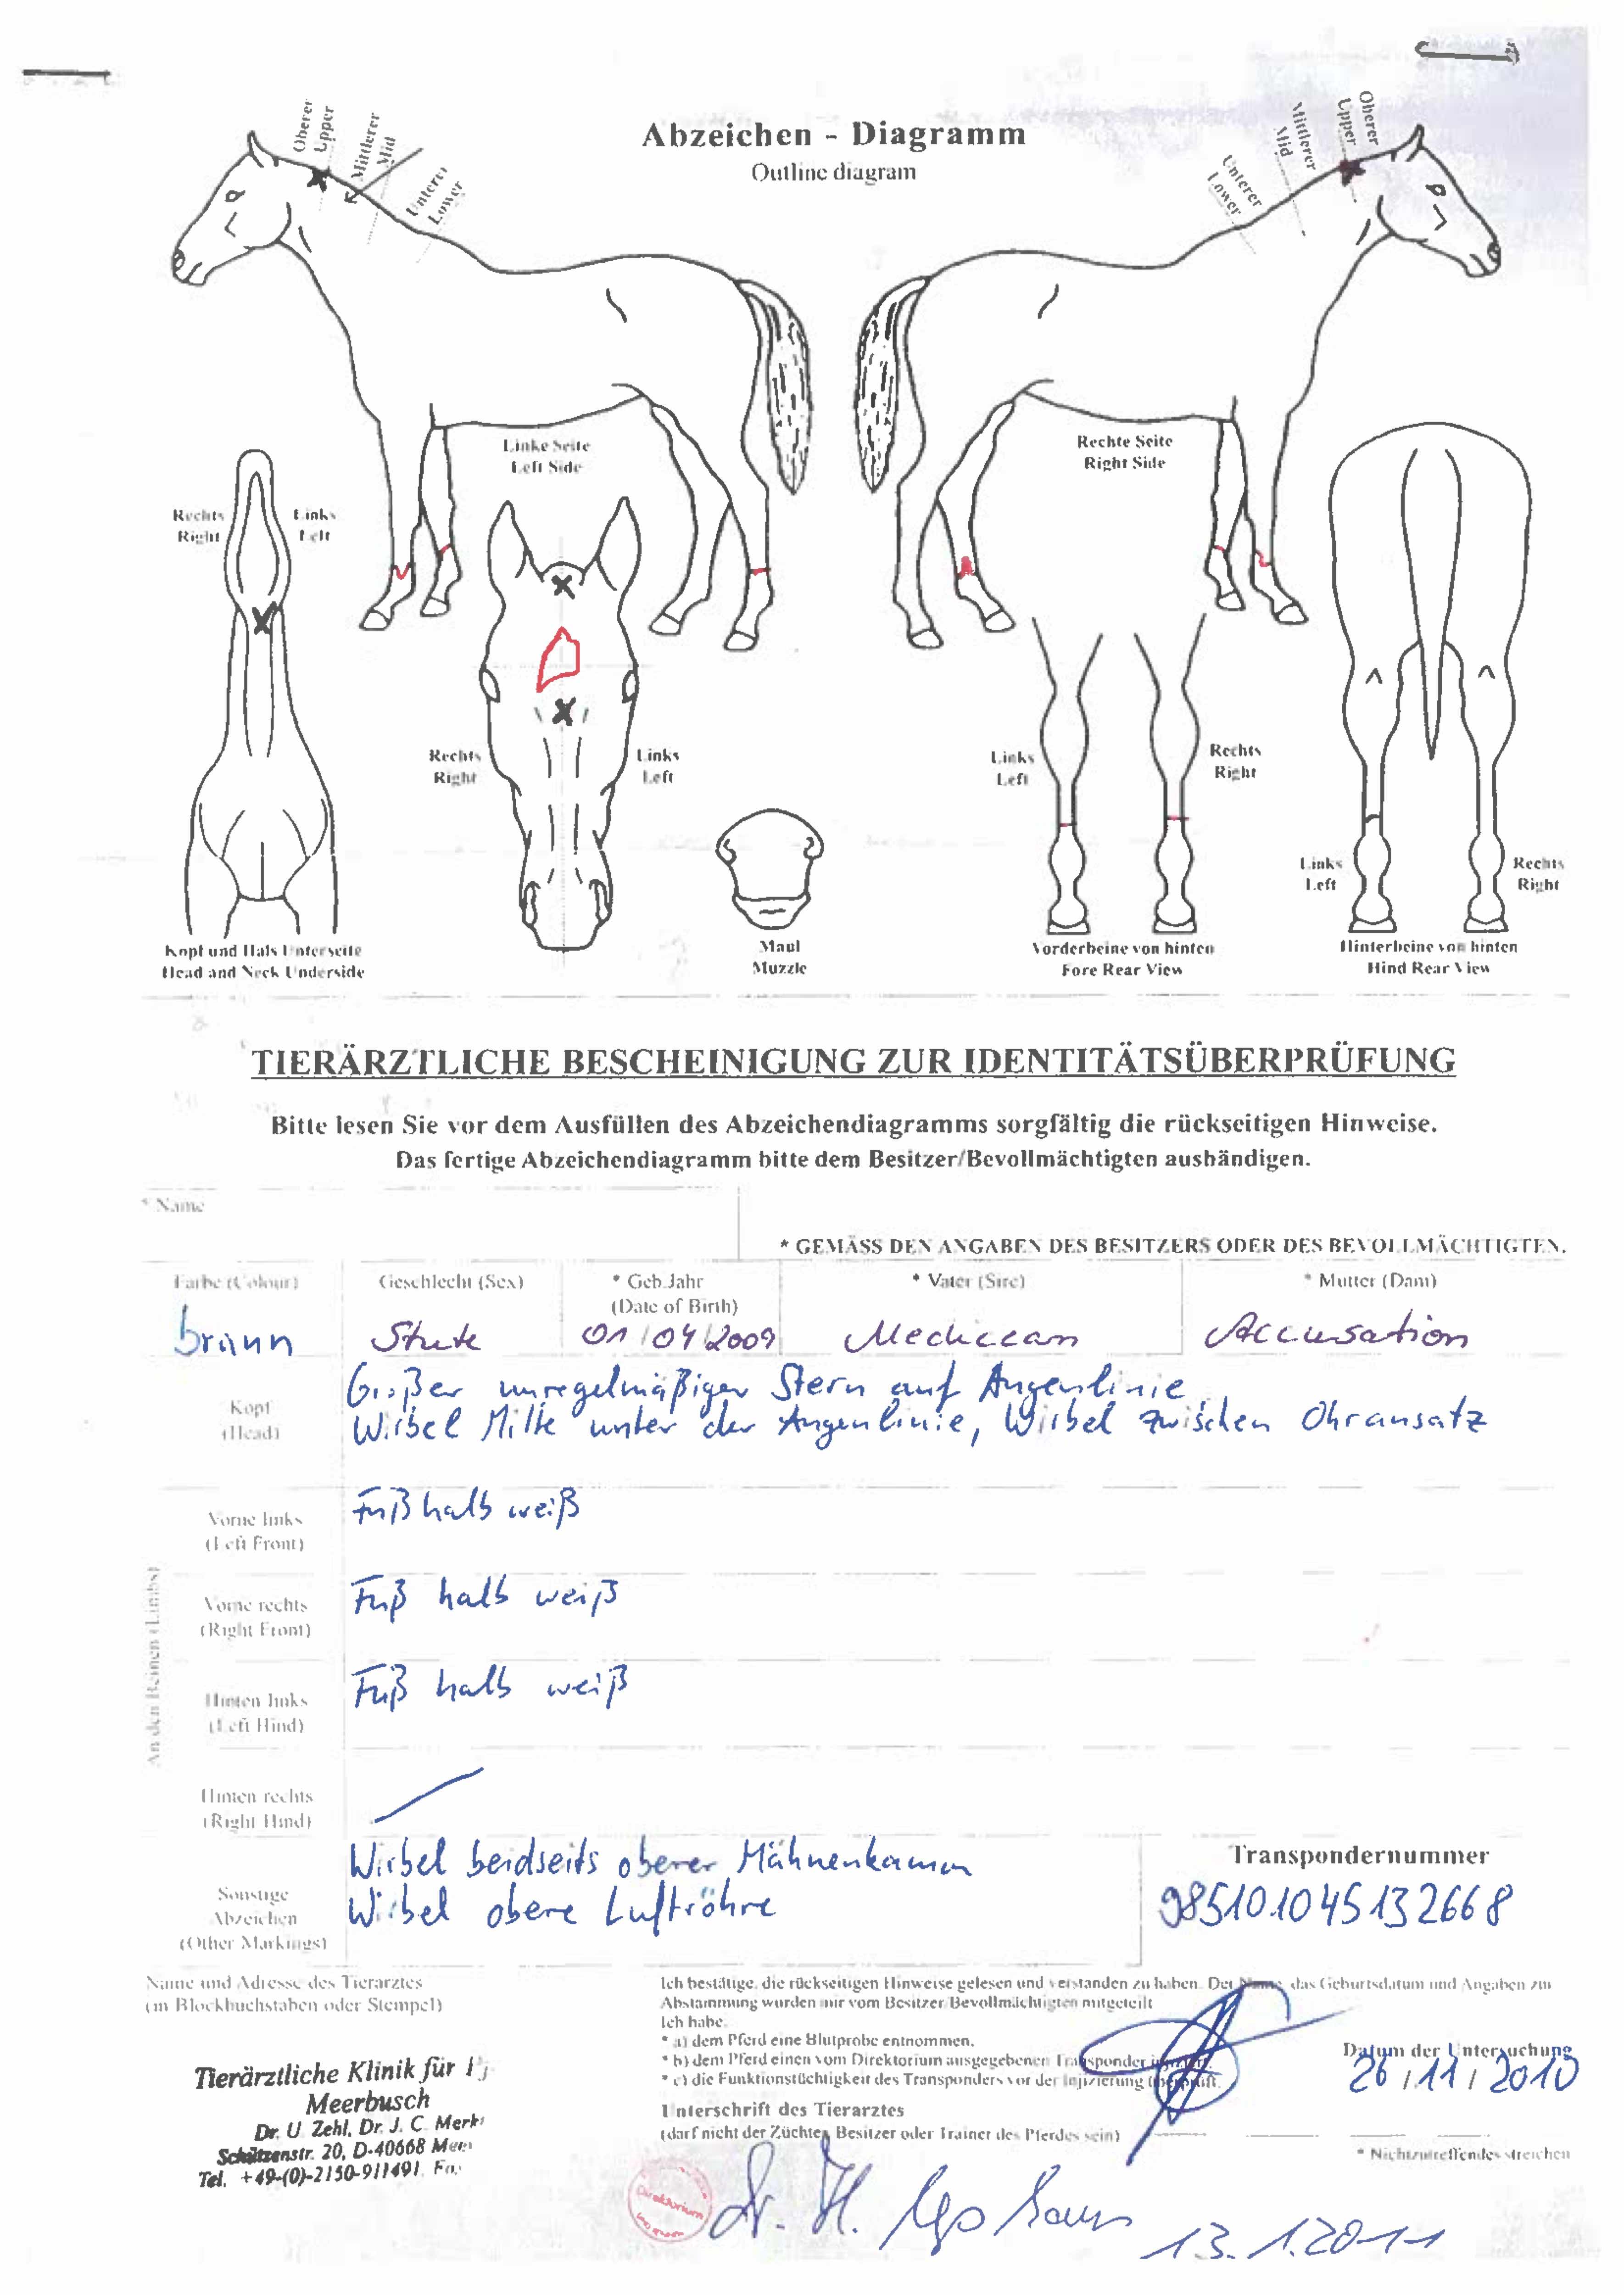 Abzeichen - Diagramm
Outline diagram
Oberer
Upper
Mittlerer
Mid
Unterer
Lower
Unterer
Lower
Mittlerer
Mid
Oberer
Upper
Linke Seite
Left Side
Rechte Seite
Right Side
Rechts
Right
Links
Left
Rechts
Right
Links
Left
Links
Left
Rechts
Right
Links
Left
Rechts
Right
Kopf und Hals Unterseite
Head and Neck Underside
Maul
Muzzle
Vorderbeine von hinten
Fore Rear View
Hinterbeine von hinten
Hind Rear View
TIERÄRZTLICHE BESCHEINIGUNG ZUR IDENTITÄTSÜBERPRÜFUNG
Bitte lesen Sie vor dem Ausfüllen des Abzeichendiagramms sorgfältig die rückseitigen Hinweise.
Das fertige Abzeichendiagramm bitte dem Besitzer/Bevollmächtigten aushändigen.
* Name
* GEMÄSS DEN ANGABEN DES BESITZERS ODER DES BEVOLLMÄCHTIGTEN.
Farbe (Colour) Geschlecht (Sex) * Geb.Jahr (Date of Birth) * Vater (Sire) * Mutter (Dam)
braun Stute 01/04/2009 Mediccan Accusation
Kopf
(Head)
Großer unregelmäßiger Stern auf Augenlinie
Wirbel Mitte unter der Augenlinie, Wirbel zwischen Ohransatz
An den Beinen (Limbs)
Vorne links
(Left Front)
Fuß halb weiß
Vorne rechts
(Right Front)
Fuß halb weiß
Hinten links
(Left Hind)
Fuß halb weiß
Hinten rechts
(Right Hind)
Sonstige
Abzeichen
(Other Markings)
Wirbel beidseits oberer Mähnenkamm
Wirbel obere Luftröhre
Transpondernummer
985101045132668
Name und Adresse des Tierarztes
(in Blockbuchstaben oder Stempel)
Tierärztliche Klinik für
Meerbusch
Dr. U. Zehl, Dr. J. C. Merk
Schützenstr. 20, D-40668
Tel. +49-(0)-2150-911491
Ich bestätige, die rückseitigen Hinweise gelesen und verstanden zu haben. Der Name, das Geburtsdatum und Angaben zur
Abstammung wurden mir vom Besitzer/Bevollmächtigten mitgeteilt
Ich habe:
* a) dem Pferd eine Blutprobe entnommen.
* b) dem Pferd einen vom Direktorium ausgegebenen Transponder injiziert.
* c) die Funktionstüchtigkeit des Transponders vor der Injizierung überprüft.
Unterschrift des Tierarztes
(darf nicht der Züchter, Besitzer oder Trainer des Pferdes sein)
Datum der Untersuchung
26/11/2010
* Nichtzutreffendes streichen
Direktorium
Dr. H.
13.1.2011